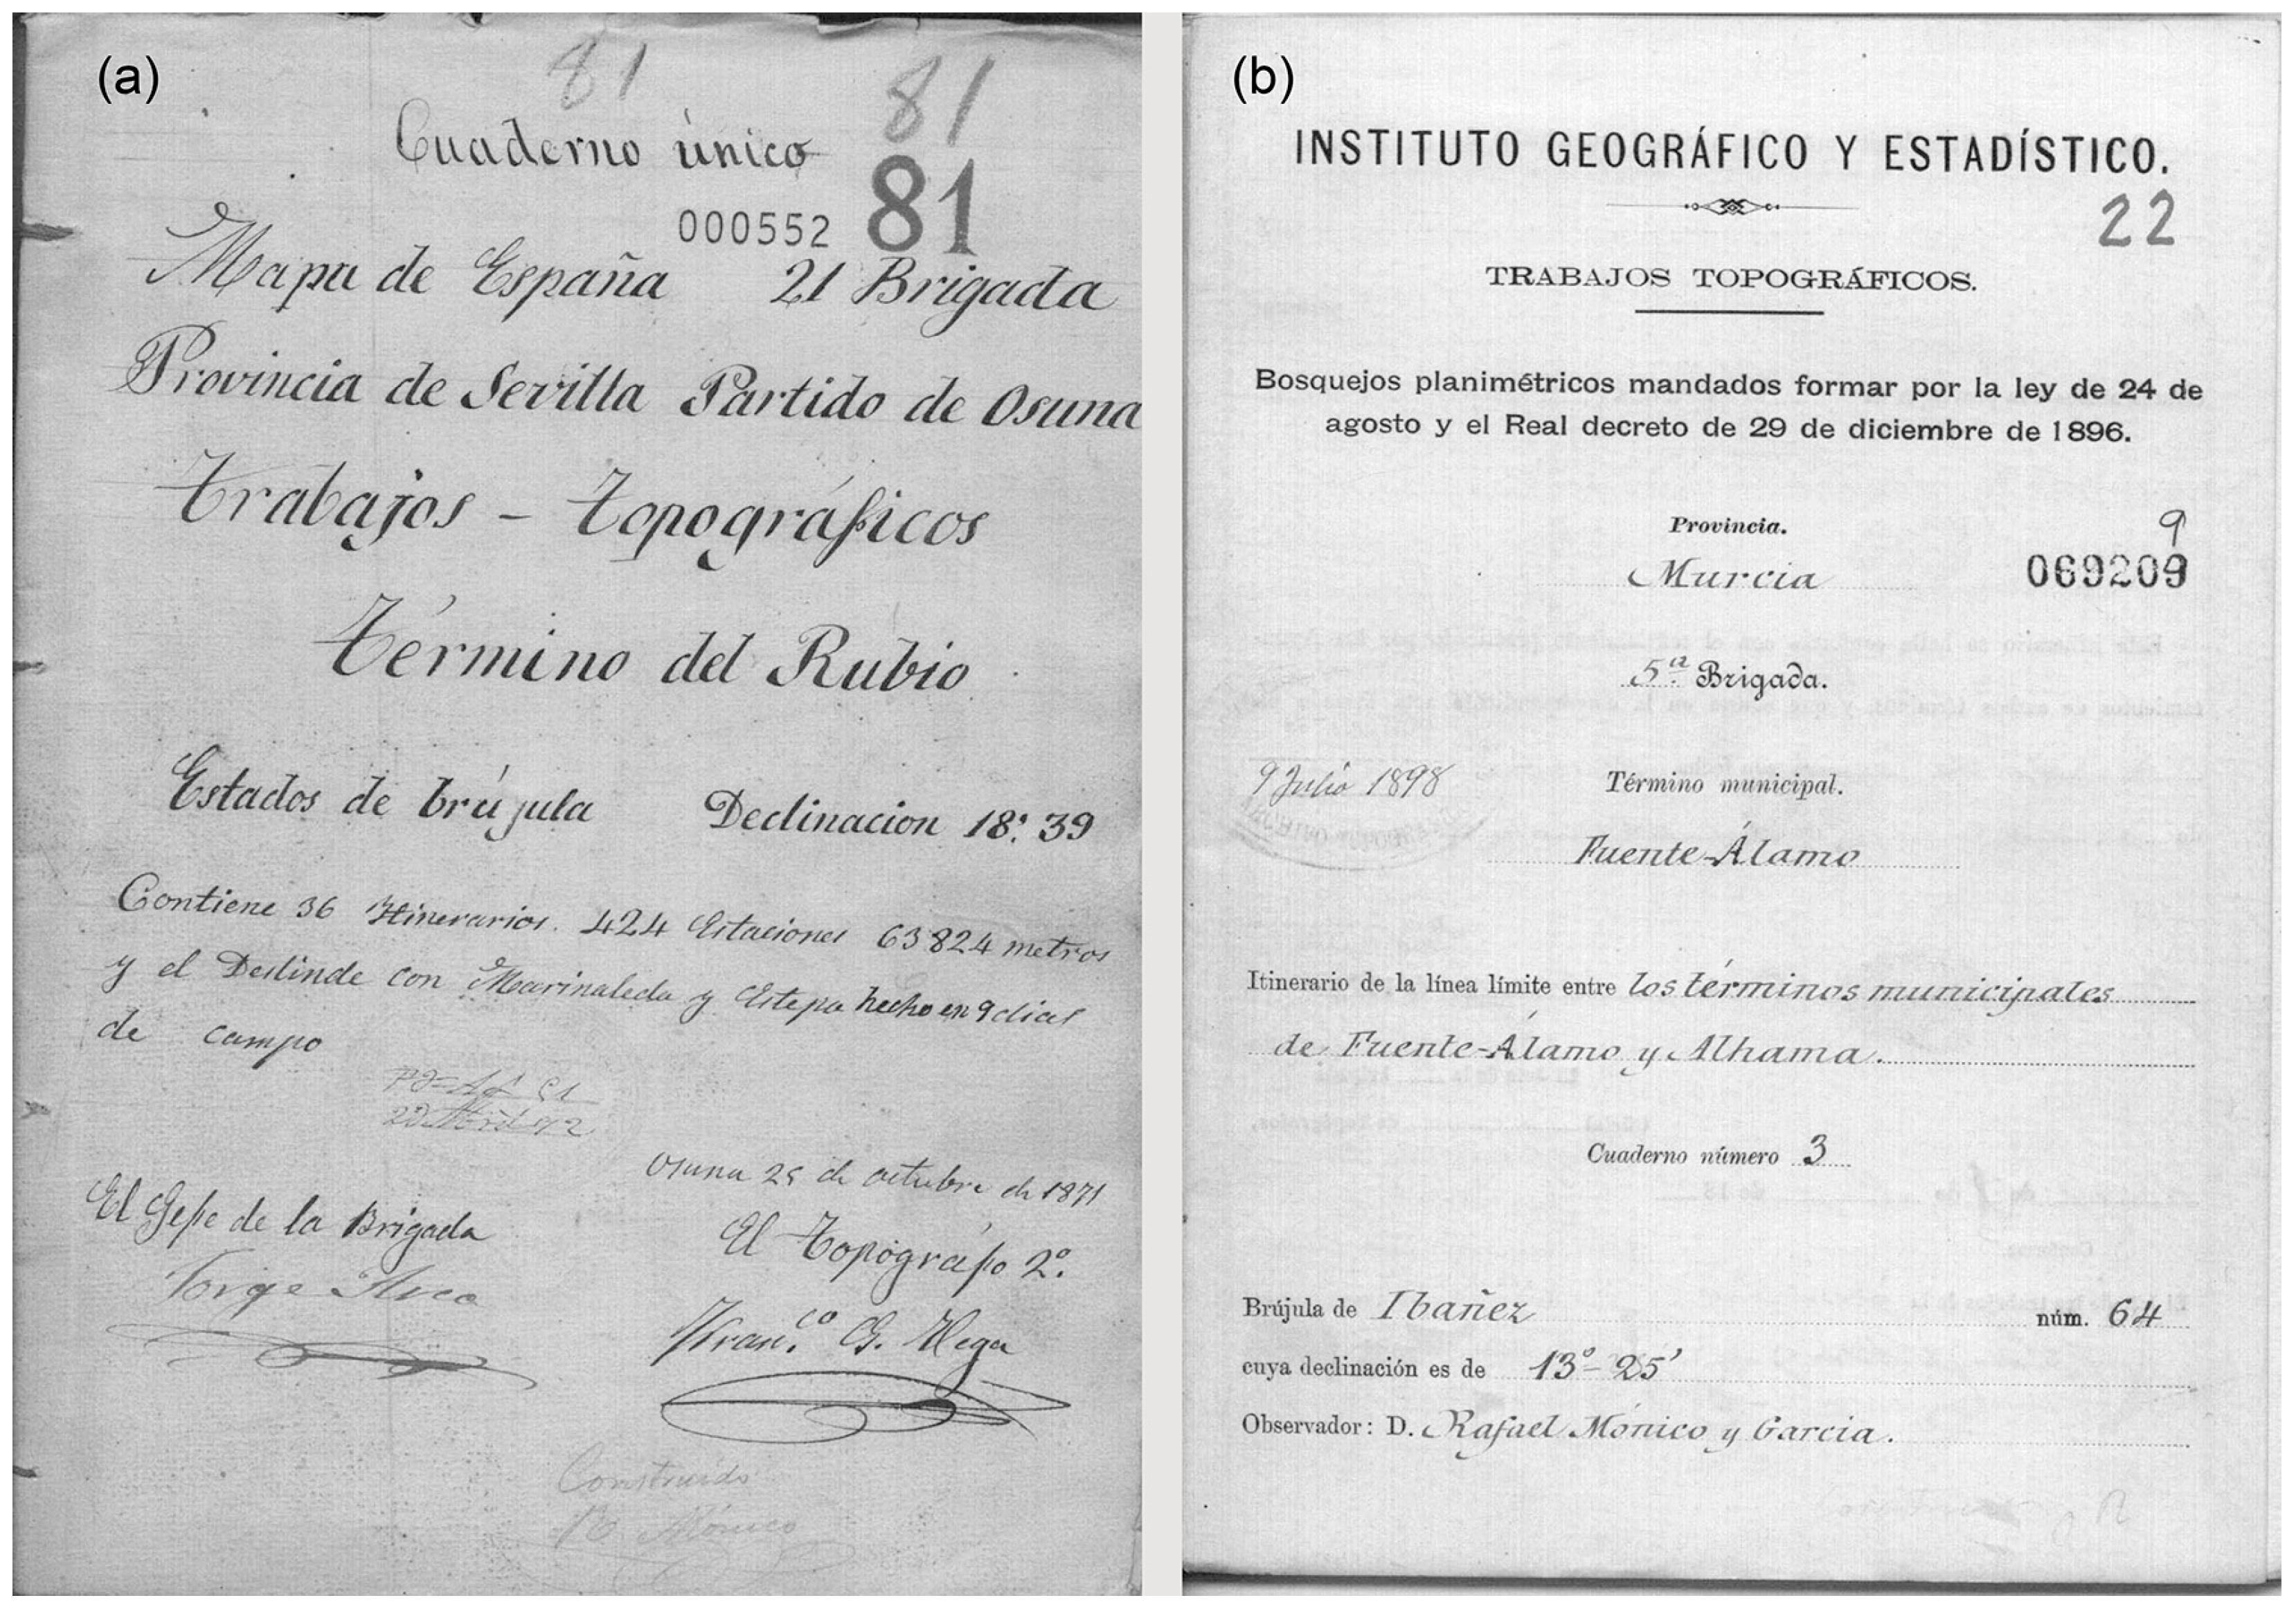 (a)
81
81
Cuaderno único
000552 81
Mapa de España 21 Brigada
Provincia de Sevilla Partido de Osuna
Trabajos - Topográficos
Término del Rubio
Estados de brújula Declinacion 18º. 39
Contiene 36 Itinerarios. 424 Estaciones 63824 metros
y el Deslinde con Marinaleda y Estepa hecho en 9 dias
de campo
Osuna 25 de octubre de 1871
El Gefe de la Brigada
El Topográfo 2º.
Jorge
Franco. G. Vega
Construido
Mónico
(b)
INSTITUTO GEOGRÁFICO Y ESTADÍSTICO.
22
TRABAJOS TOPOGRÁFICOS.
Bosquejos planimétricos mandados formar por la ley de 24 de
agosto y el Real decreto de 29 de diciembre de 1896.
Provincia.
9
Murcia
069209
5ª Brigada.
9 Julio 1898
Término municipal.
Fuente-Álamo
Itinerario de la línea límite entre los términos municipales
de Fuente-Álamo y Alhama.
Cuaderno número 3
Brújula de Ibañez núm. 64
cuya declinación es de 13º-25'
Observador: D. Rafael Mónico y Garcia.